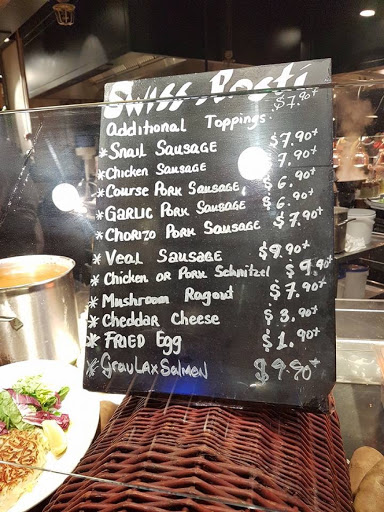 Swiss Rosti
$7.90+
Additional Toppings:
*Snail Sausage $7.90+
*Chicken Sausage 7.90+
*Course Pork Sausage $6.90+
*Garlic Pork Sausage $6.90+
*Chorizo Pork Sausage $7.90+
*Veal Sausage $9.90+
*Chicken or Pork Schnitzel $9.90+
*Mushroom Ragout $7.90+
*Cheddar Cheese $3.90+
*FRIED Egg $1.90+
*GravLax Salmon $9.90+